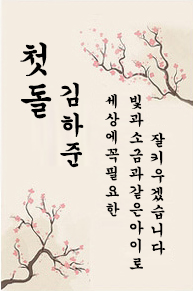 첫돌
김하준
세상에꼭필요한
빛과소금과같은아이로
잘키우겠습니다